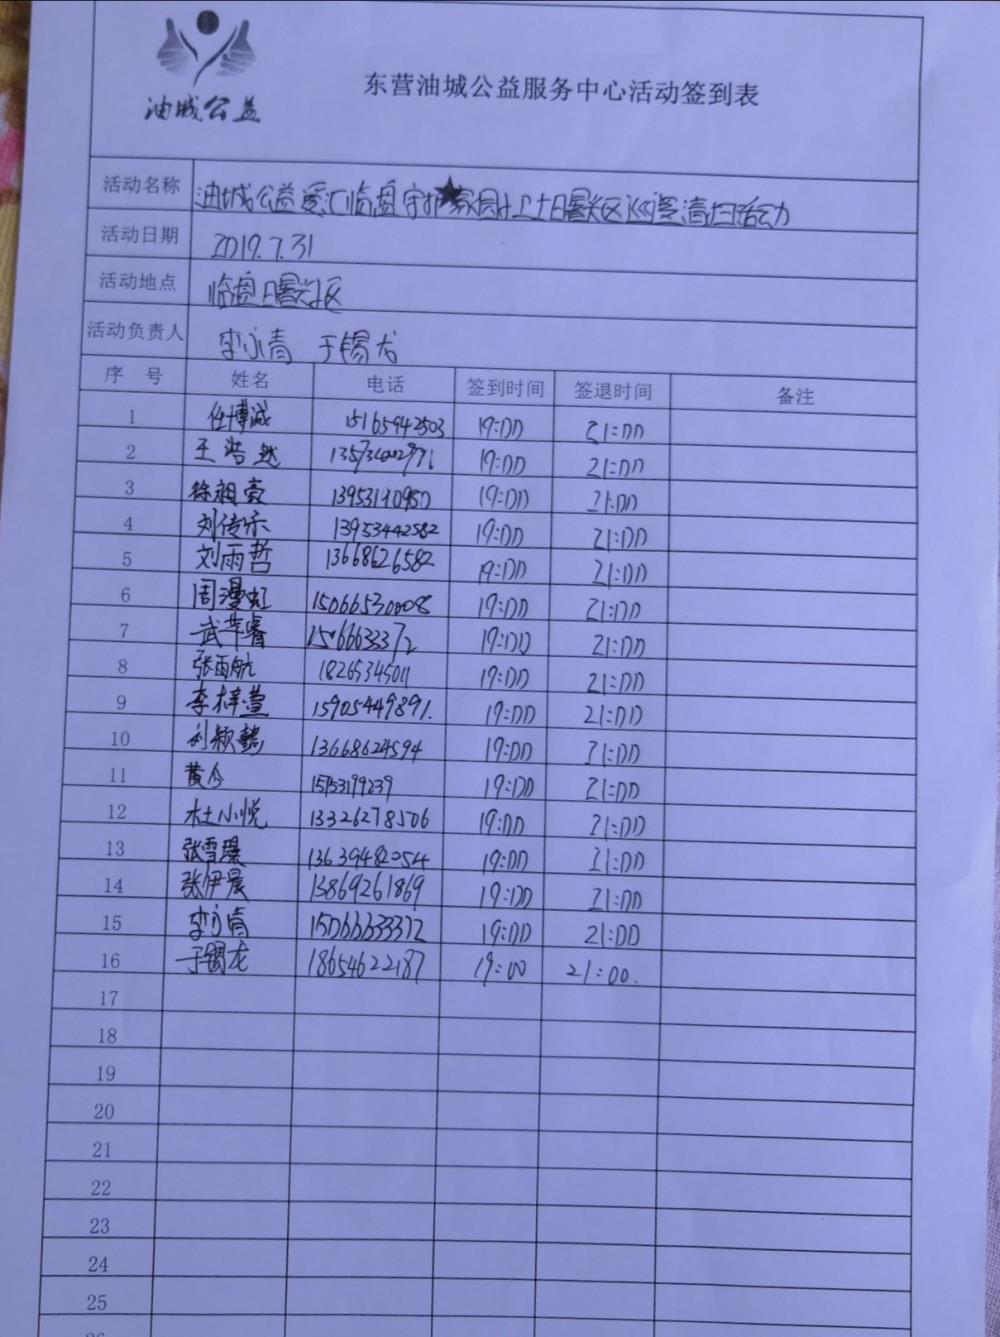 油城公益
东营油城公益服务中心活动签到表
活动名称 油城公益爱汇临盘守护★家园 曙光区 清扫活动
活动日期 2019.7.31
活动地点 临盘曙光区
活动负责人 李永清 于锡龙
序号 姓名 电话 签到时间 签退时间 备注
1 任博诚 15165942503 19:00 21:00
2 王浩然 19:00 21:00
3 徐祖豪 19:00 21:00
4 刘传乐 13953442582 19:00 21:00
5 刘雨哲 13668626582 19:00 21:00
6 周漫虹 15066530008 19:00 21:00
7 武苹睿 19:00 21:00
8 张雨航 18265345011 19:00 21:00
9 李梓萱 15905449891. 19:00 21:00
10 刘颖懿 13668624594 19:00 21:00
11 黄今 19:00 21:00
12 杜小悦 13326278506 19:00 21:00
13 张雪 13639482054 19:00 21:00
14 张伊晨 13869261869 19:00 21:00
15 李永清 15066633372 19:00 21:00
16 于锡龙 18654622187 19:00 21:00.
17
18
19
20
21
22
23
24
25
26